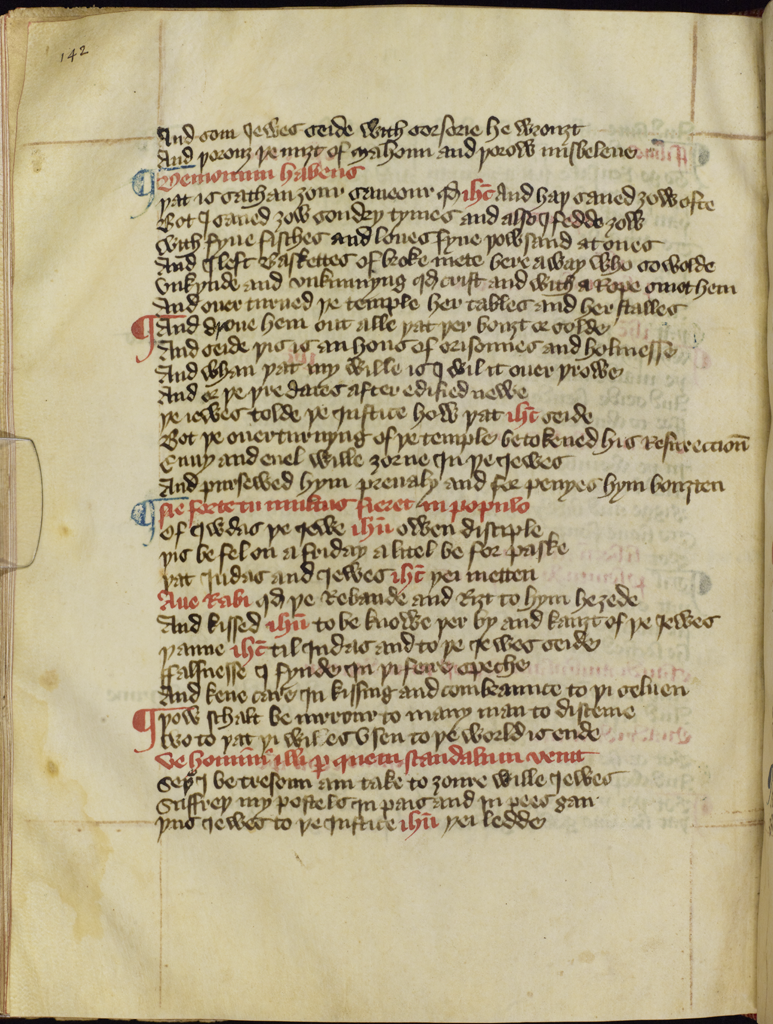 142
And som Jewes seide with sorserie he wrouzt
And þorouz þe mizt of Mahoun and þorow misbeleue
Demonium habens
þat is sathan zour saueour qd ihc and haþ saued zow ofte
Bot I saued zow sondry tymes and also I fedde zow
With fyue fisches and loues fyue þowsand at ones
And I left Baskettes of broke mete bere away who so wolde
Vnkynde and vnkunnyng qd crist and with a Rope smot hem
And ouer turned þe temple her tables and her stalles
And droue hem out alle þat þer bouzt or solde
And seide þis is an hous of orisonnes and holinesse
And whan þat my wille is I wil it ouer þrowe
And er þe þre daies after edified newe
þe iewes tolde þe Justice how þat ihc seide
Bot þe ouerturnyng of þe temple betokened his Resurreccioun
Enuy and euel wille zorne In þe Jewes
And pursewed hym preualy and for penyes hym bouzten
Ne forte tumultus fieret in populo
Of Iwdas þe Jewe ihu owen disciple
þis be fel on a friday a litel be for paske
þat Judas and Jewes ihc þei metten
Aue Rabi qd þe Rebaude and Rizt to hym he zede
And kissed ihu to be knowe þer by and kauzt of þe Jewes
þanne ihc til Judas and to þe Jewes seide
ffalsnesse I fynde In þi feire speche
And kene care In kissing and combraunce to þi seluen
þow schalt be mirrour to many man to disceiue
wo to þat þi wiles vsen to þe world is ende
Ve homini illi per quem scandalum venit
Seþ I be tresoun am take to zoure wille Jewes
Suffreþ my postels In pais and in pees gan
þus Jewes to þe Justice ihu þei ledde